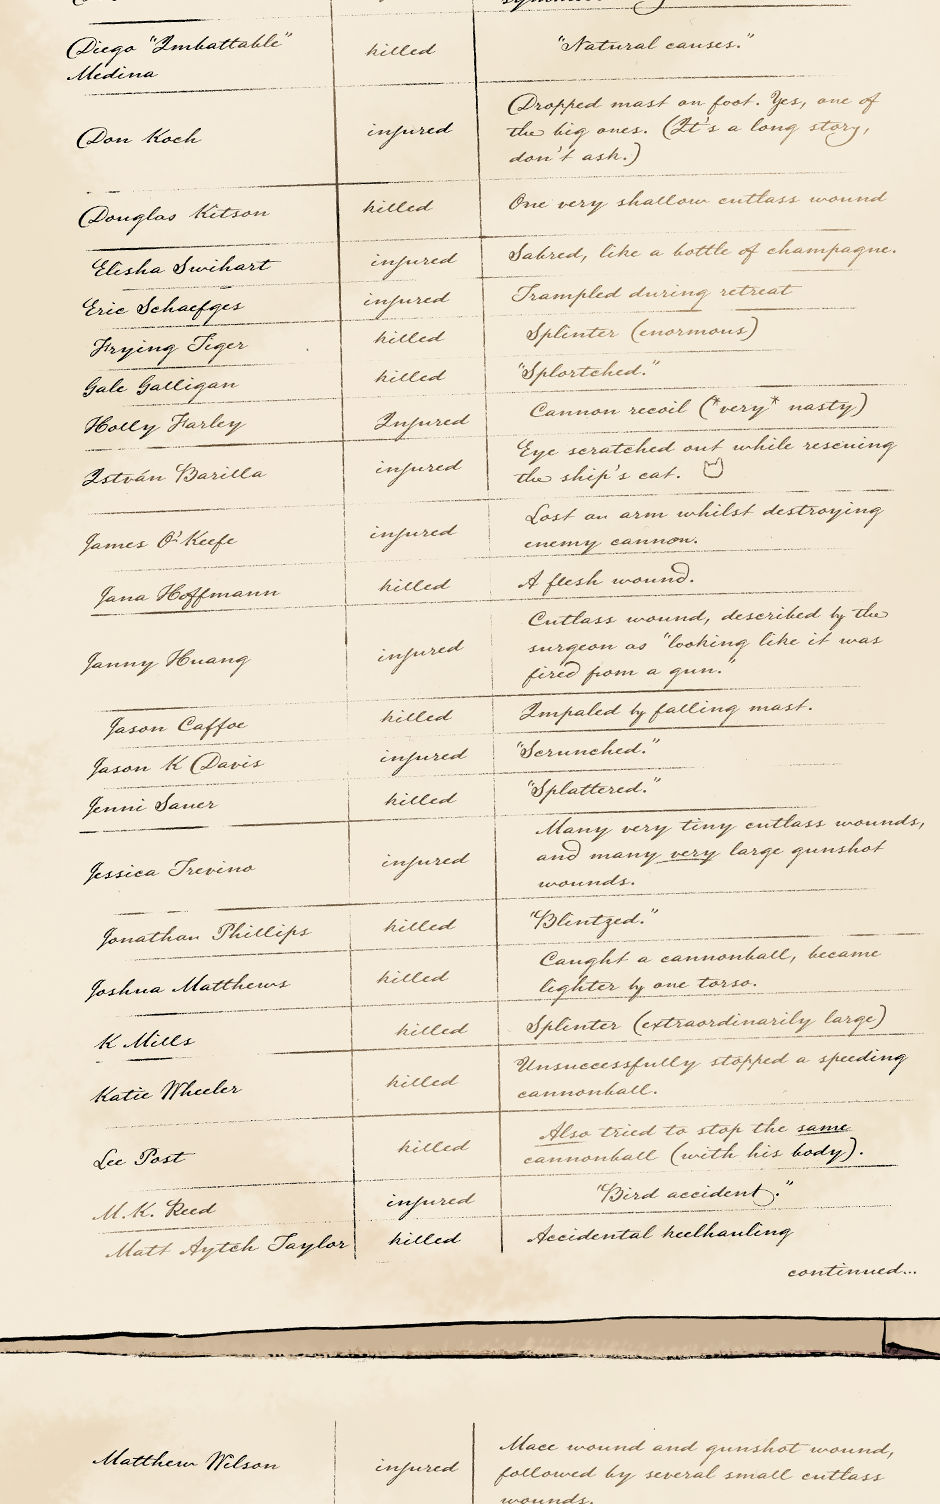 Diego "Imbattable" Medina killed "Natural causes."
Don Koch injured Dropped mast on foot. Yes, one of
the big ones. (It's a long story,
don't ask.)
Douglas Kitson killed One very shallow cutlass wound
Elisha Swihart injured Sabred, like a bottle of champagne.
Eric Schaefges injured Trampled during retreat
Frying Tiger killed Splinter (enormous)
Gale Galligan killed "Splortched."
Holly Farley Injured Cannon recoil (*very* nasty)
István Barilla injured Eye scratched out while rescuing
the ship's cat.
James O'Keefe injured Lost an arm whilst destroying
enemy cannon.
Jana Hoffmann killed A flesh wound.
Janny Huang injured Cutlass wound, described by the
surgeon as "looking like it was
fired from a gun."
Jason Caffoe killed Impaled by falling mast.
Jason K Davis injured "Scrunched."
Jenni Sauer killed "Splattered."
Jessica Trevino injured Many very tiny cutlass wounds,
and many very large gunshot
wounds.
Jonathan Phillips killed "Blintzed."
Joshua Matthews killed Caught a cannonball, became
lighter by one torso.
K Mills killed Splinter (extraordinarily large)
Katie Wheeler killed Unsuccessfully stopped a speeding
cannonball.
Lee Post killed Also tried to stop the same
cannonball (with his body).
M.K. Reed injured "Bird accident."
Matt Aytch Taylor killed Accidental keelhauling
continued...
Matthew Wilson injured Mace wound and gunshot wound,
followed by several small cutlass
wounds.